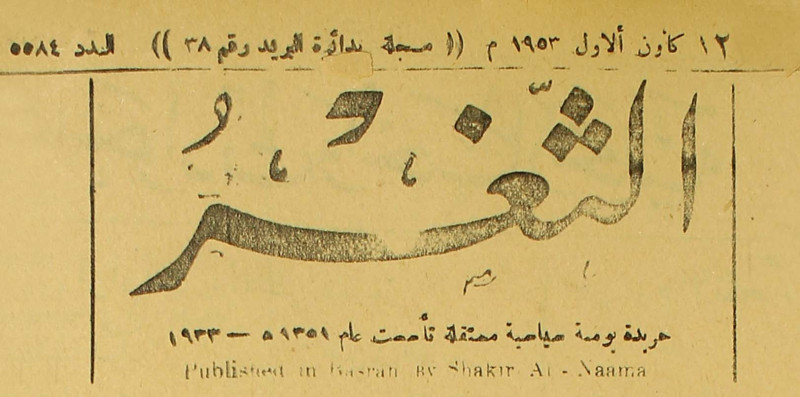 ١٢ كانون ألاول ١٩٥٣ م (( مسجلة بدائرة البريد رقم ٣٨ )) العدد ٥٥٨٤
الثَّغْرُ
جريدة يومية سياسية مستقلة تأسست عام ١٣٥١ ه — ١٩٣٣
Published in Basrah By Shakir Al - Naama